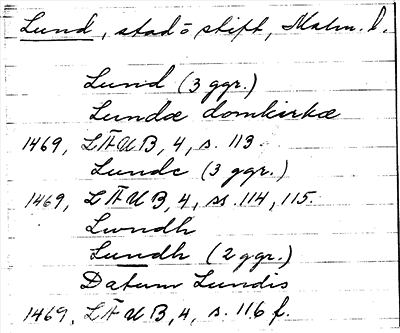 Lund, stad o stift, Malm. l.
Lund (3 ggr.)
Lundæ domkirkæ
1469, LÄUB, 4, s. 113.
Lunde (3 ggr.)
1469, LÄUB, 4, ss. 114, 115.
Lwndh
Lundh (2 ggr.)
Datum Lundis
1469, LÄUB, 4, s. 116 f.